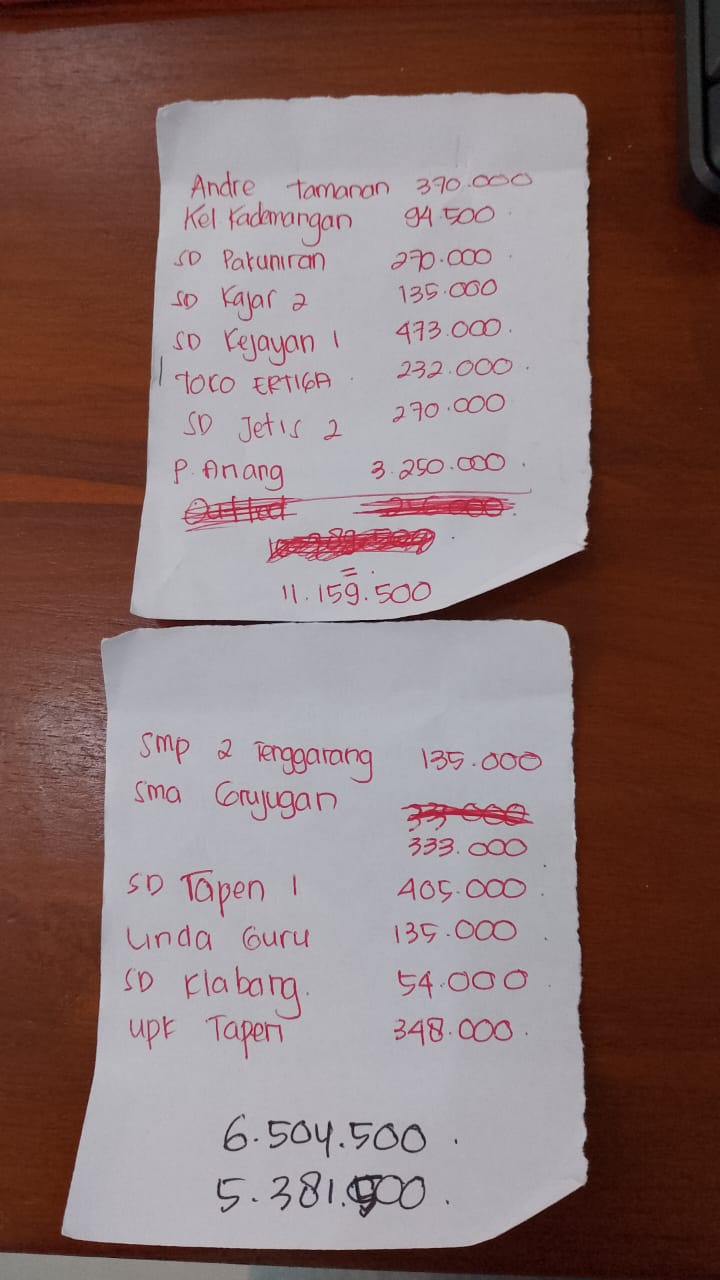 Andre Tamanan 370.000
Kel Kademangan 94.500
SD Pakuniran 270.000
SD Kajar 2 135.000
SD Kejayan 1 473.000.
Toko ERTIGA 232.000.
SD Jetis 2 270.000
P. Anang 3.250.000.
=
11.159.500
Smp 2 Tenggarang 135.000
Sma Grujugan
333.000
SD Tapen 1 405.000
Linda Guru 135.000
SD Klabang. 54.000
UPK Tapen 348.000.
6.504.500.
5.381.500.